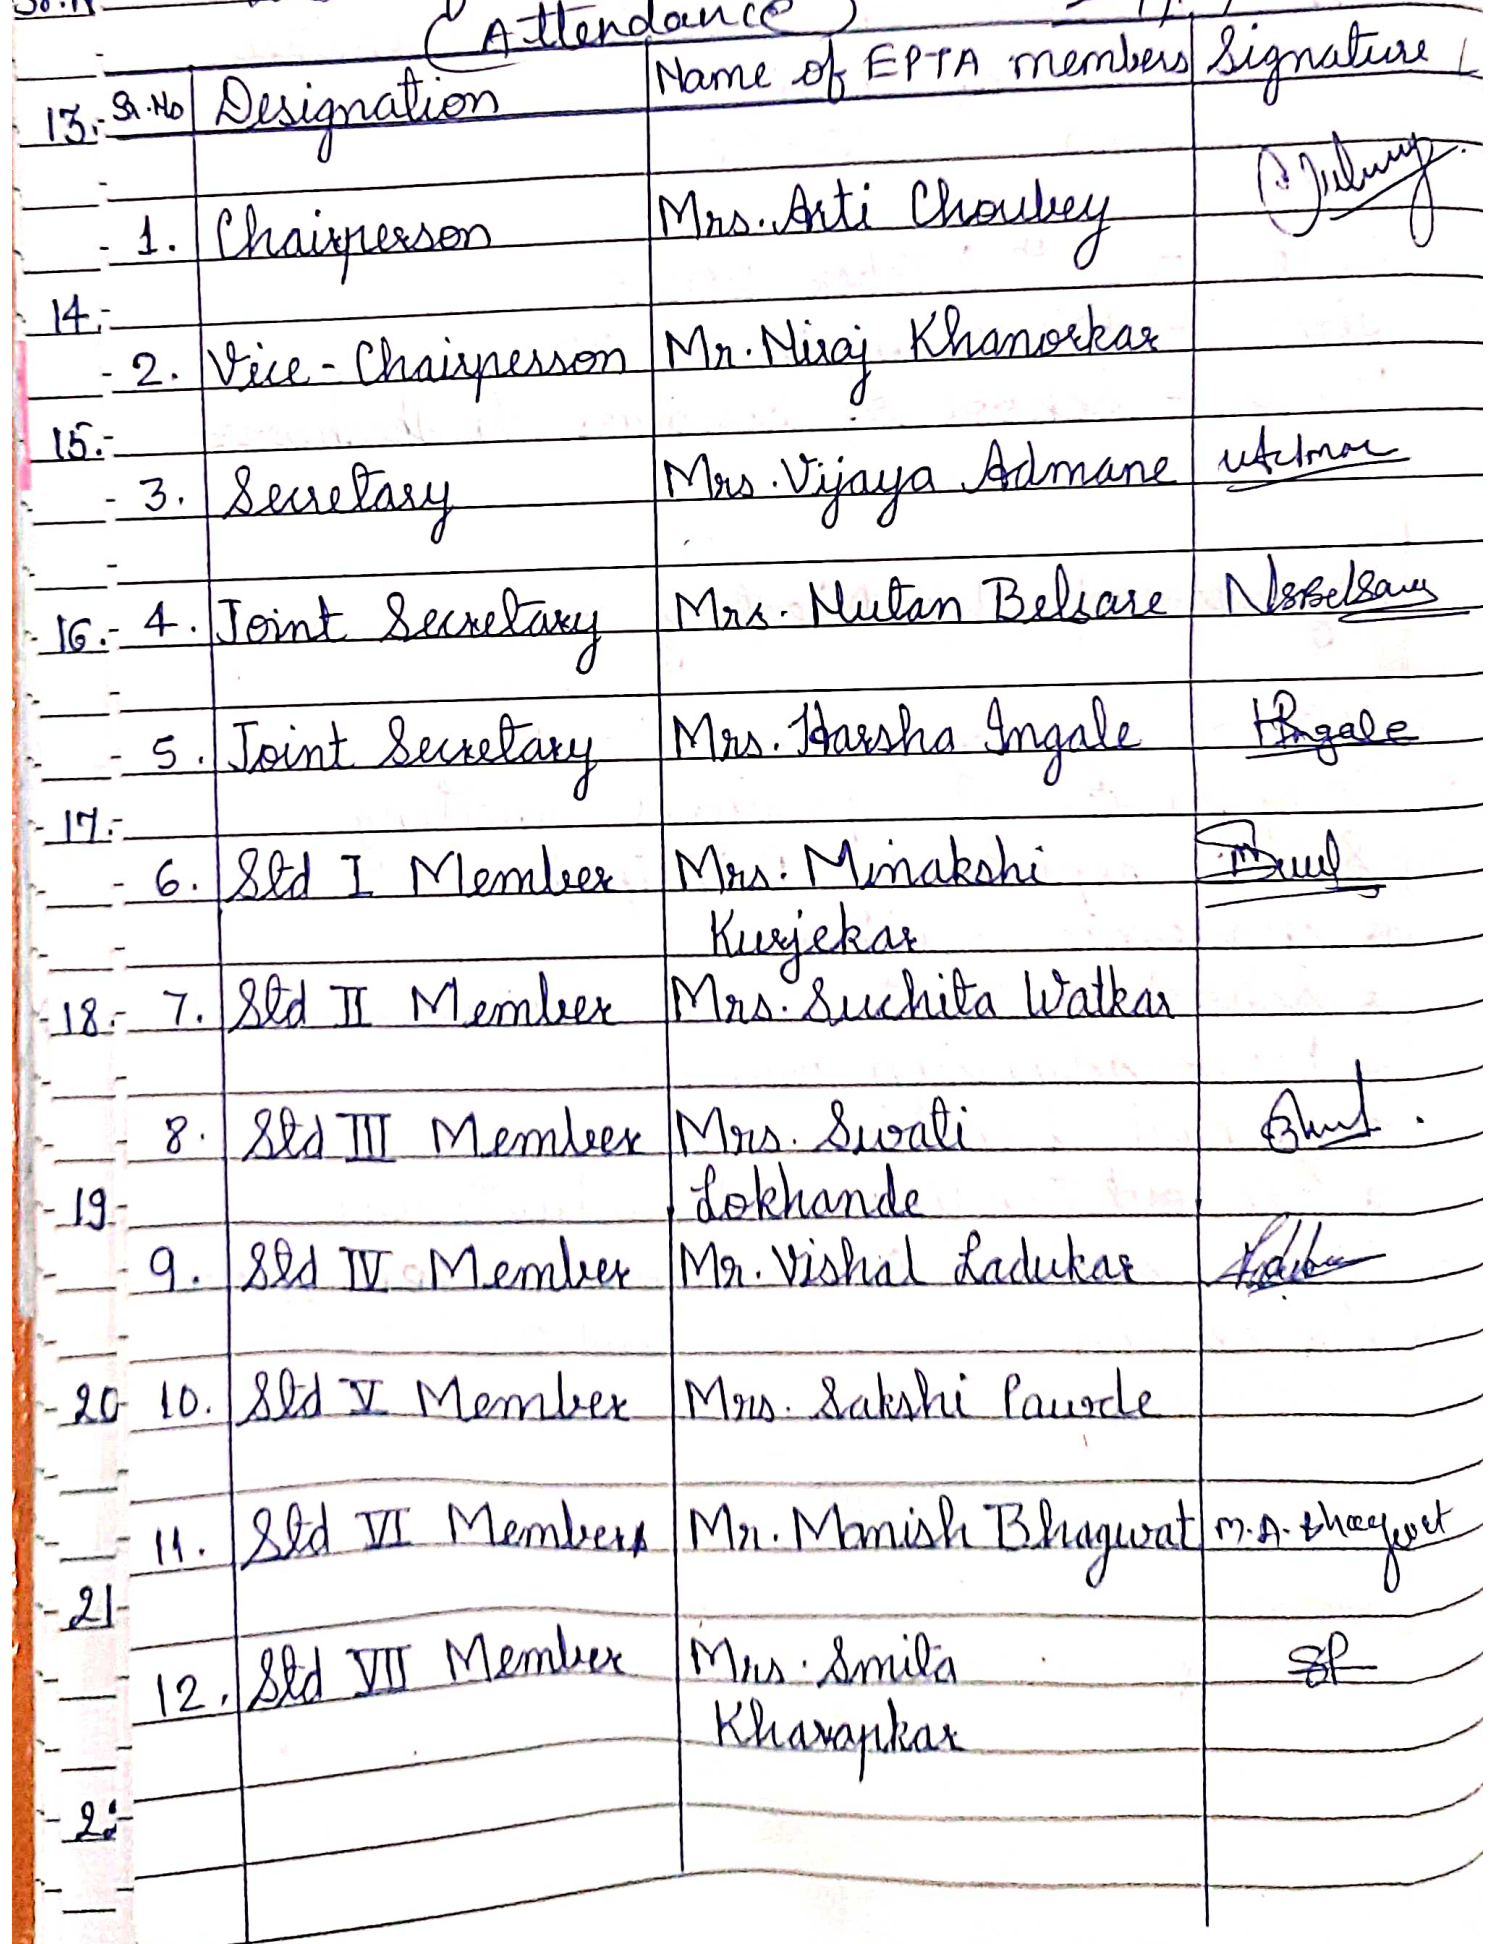 (Attendance)
Sr.No Designation Name of EPTA members Signature
13.-
1. Chairperson Mrs. Arti Choubey
14.-
2. Vice-Chairperson Mr. Niraj Khanorkar
15.-
3. Secretary Mrs. Vijaya Admane
16.- 4. Joint Secretary Mrs. Nutan Belsare NSBelsare
5. Joint Secretary Mrs. Harsha Ingale HIngale
17.-
6. Std I Member Mrs. Minakshi
Kurjekar
18.- 7. Std II Member Mrs. Suchita Watkar
8. Std III Member Mrs. Swati
19.- Lokhande
9. Std IV Member Mr. Vishal Ladukar
20- 10. Std V Member Mrs. Sakshi Paurde
11. Std VI Members Mr. Manish Bhagwat M.A. Bhagwat
21-
12. Std VII Member Mrs. Smita
Kharapkar